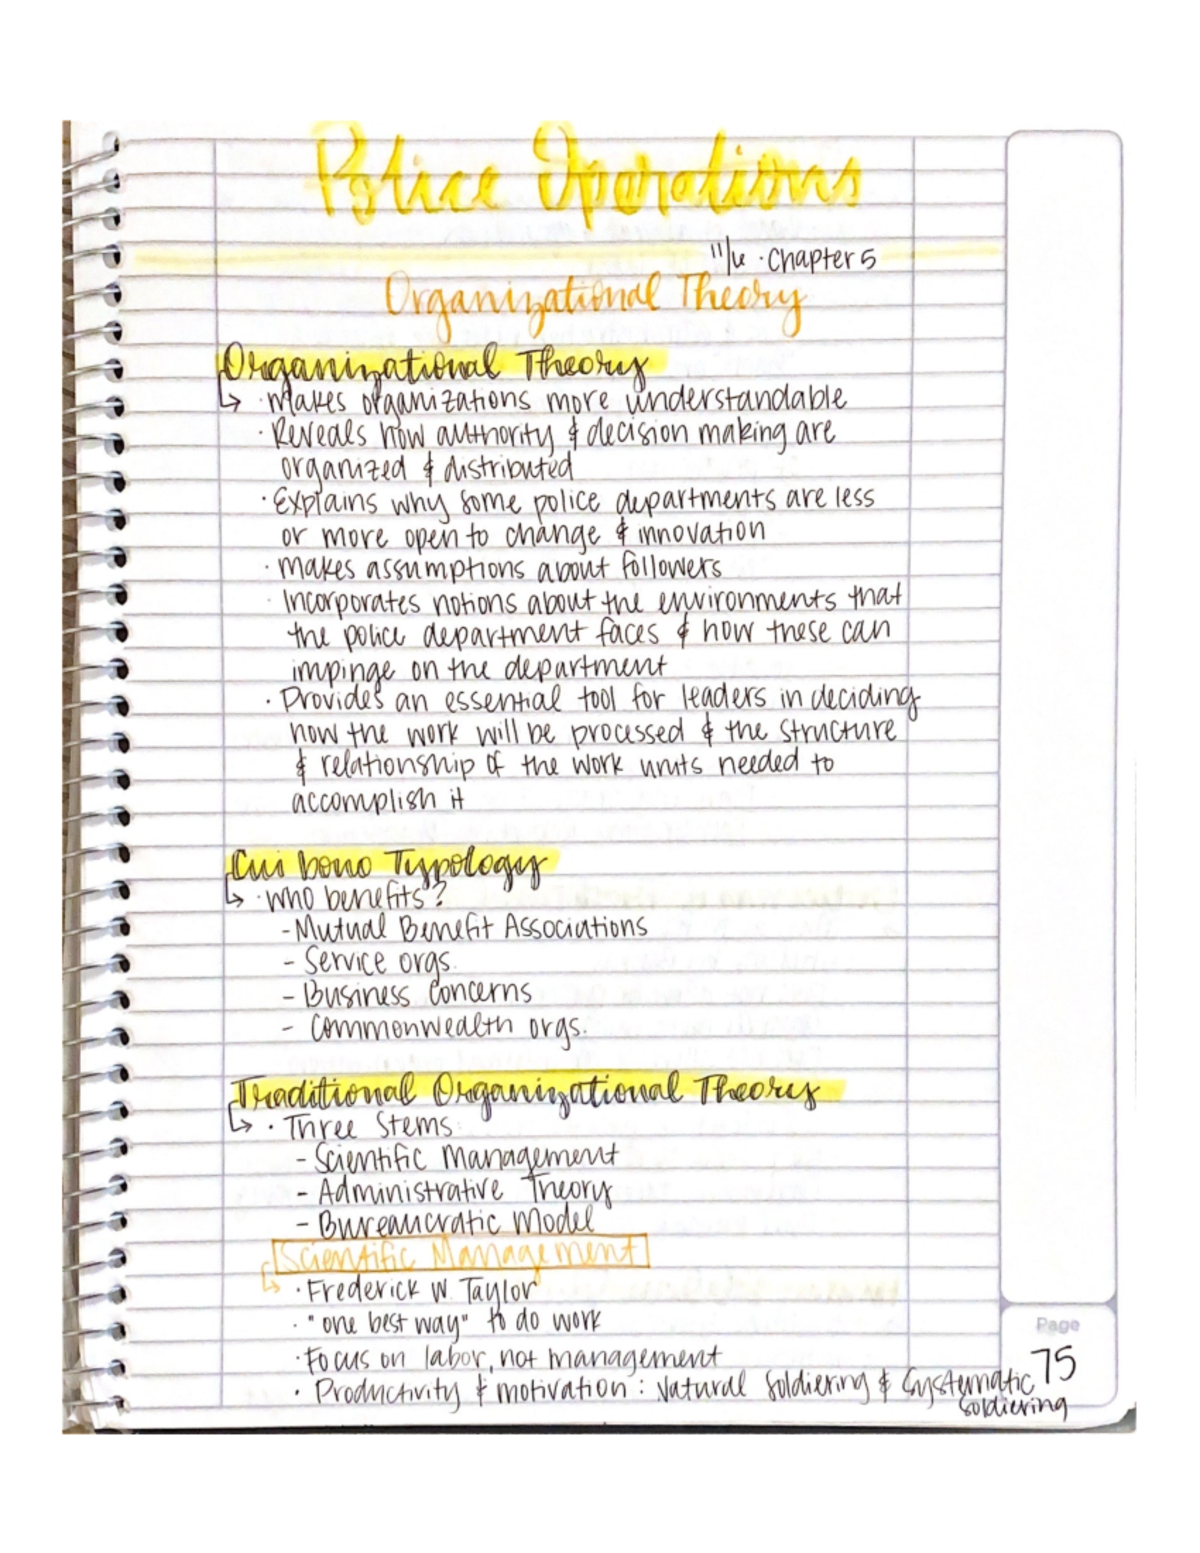 Police Operations
11/6 · Chapter 5
Organizational Theory
Organizational Theory
↳ · Makes organizations more understandable
· Reveals how authority & decision making are
organized & distributed
· Explains why some police departments are less
or more open to change & innovation
· Makes assumptions about followers
· Incorporates notions about the environments that
the police department faces & how these can
impinge on the department
· Provides an essential tool for leaders in deciding
how the work will be processed & the structure
& relationship of the work units needed to
accomplish it
Cui bono Typology
↳ · Who benefits?
- Mutual Benefit Associations
- Service orgs.
- Business Concerns
- Commonwealth orgs.
Traditional Organizational Theory
↳ · Three Stems
- Scientific Management
- Administrative Theory
- Bureaucratic Model
Scientific Management
↳ · Frederick W. Taylor
· "one best way" to do work
· Focus on labor, not management
· Productivity & motivation : Natural Soldiering & Systematic
Soldiering
Page
75